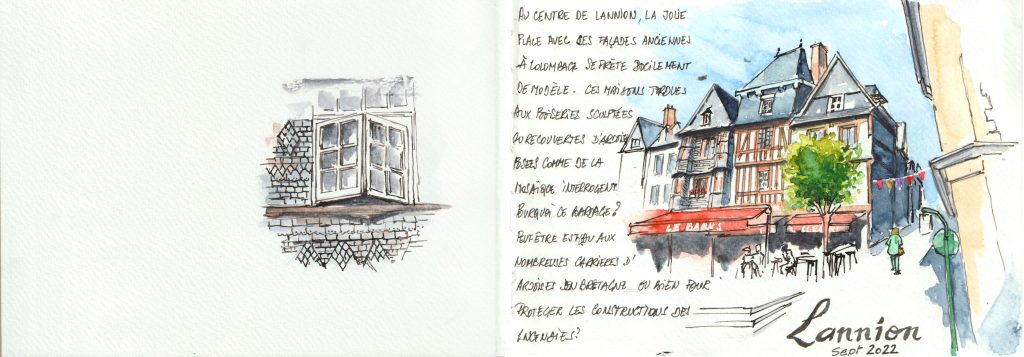 AU CENTRE DE LANNION, LA JOLIE
PLACE AVEC SES FAÇADES ANCIENNES
À COLOMBAGE SE PRÊTE DOCILEMENT
DE MODÈLE. CES MAISONS TORDUES
AUX BOISERIES SCULPTÉES
OU RECOUVERTES D'ARDOISE
POSÉES COMME DE LA
MOSAÏQUE INTERROGENT
POURQUOI CE BARDAGE?
PEUT ÊTRE EST DU AUX
NOMBREUSES CARRIÈRES D'
ARDOISES EN BRETAGNE OU BIEN POUR
PROTÉGER LES CONSTRUCTIONS DES
INCENDIES?
LE BARU'S
Lannion
Sept 2022